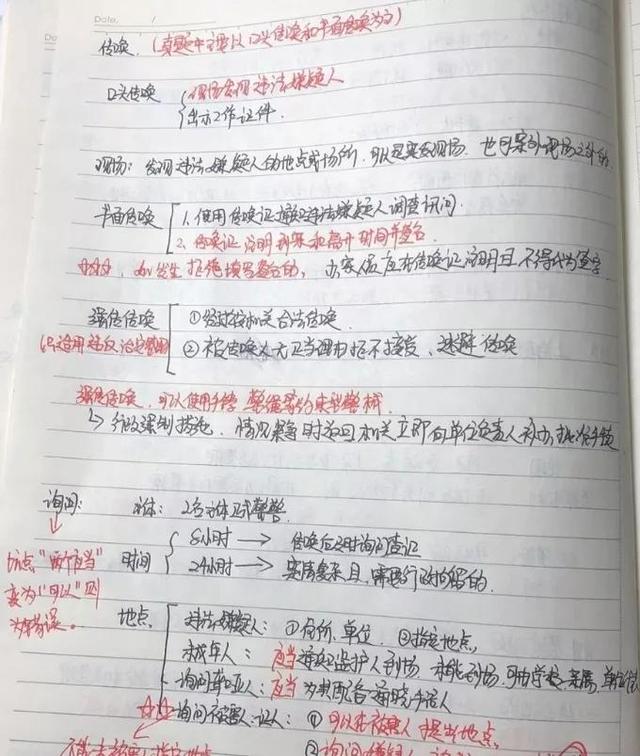 Date. /
传唤. (真题中主要以口头传唤和书面传唤为主)
口头传唤 现场发现违法嫌疑人
出示工作证件.
现场: 发现违法嫌疑人的地点或场所. 可以是案发现场. 也可案外现场之外的
书面传唤 1. 使用传唤证 违法嫌疑人调查讯问.
2. 传唤证注明到案和离开时间并签名.
拒绝填写签名的, 办案人员应在传唤证注明且不得代为签字
强传传唤 ①经过公安机关合法传唤.
只适用违反治安管理 ②被传唤人无正当理由拒不接受、逃避传唤
强传传唤, 可以使用手铐 警绳等约束性警械.
↳ 行政强制措施, 情况紧急时返回机关立即向单位负责人补办, 手续
询问: 主体: 2名 正式警察
时间 8小时 → 传唤后及时询问查证
24小时 → 案情复杂且, 需要行政拘留的.
坑点"两个应当"
变为"可以"则
为错误。
地点. 违法嫌疑人: ①住所、单位 ②指定地点,
未成年人: 应当通知监护人到场, 未能到场, 可由学校、亲属、单位
询问聋哑人: 应当为其配备通晓手语人
询问被害人、证人: ① 可以在被害人提出地点,